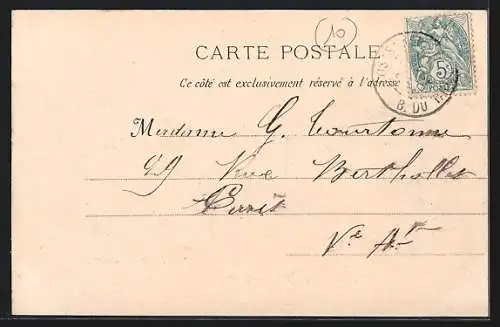 (10)
CARTE POSTALE
Ce côté est exclusivement réservé à l'adresse
5
B. DU
Madame G. Courtonne
29 Rue Berthollet
Vᵉ Aᵗ